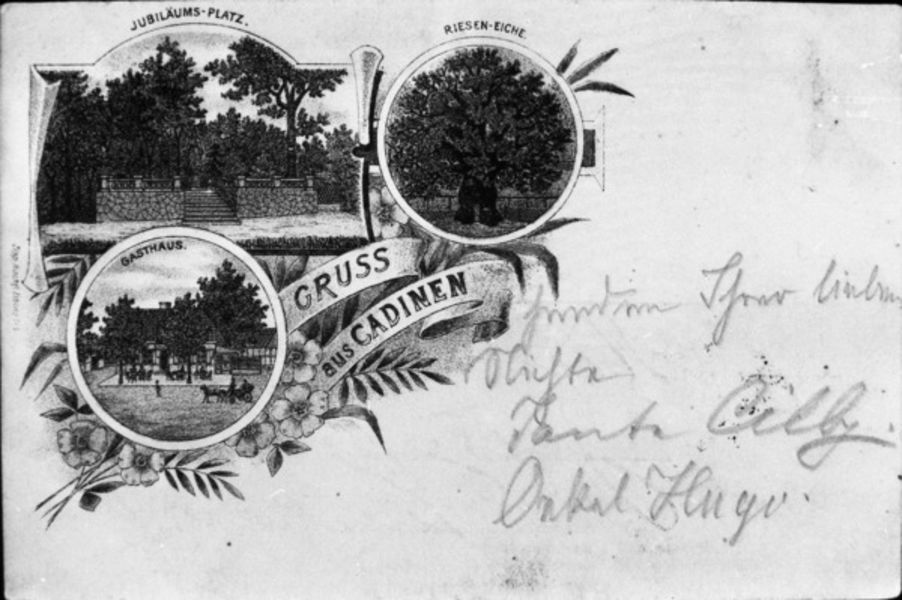 JUBILÄUMS-PLATZ.
RIESEN-EICHE.
GASTHAUS.
GRUSS
aus CADINEN
Ihrer lieben
Nichte
Tante
Onkel Hugo.